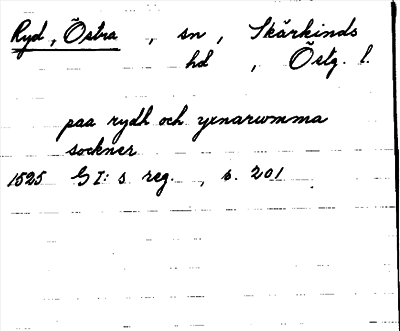 Ryd, Östra, sn, Skärkinds
hd, Östg. l.
paa rydh och yxnarwmma
sockner
1525 G I: s reg., s. 201